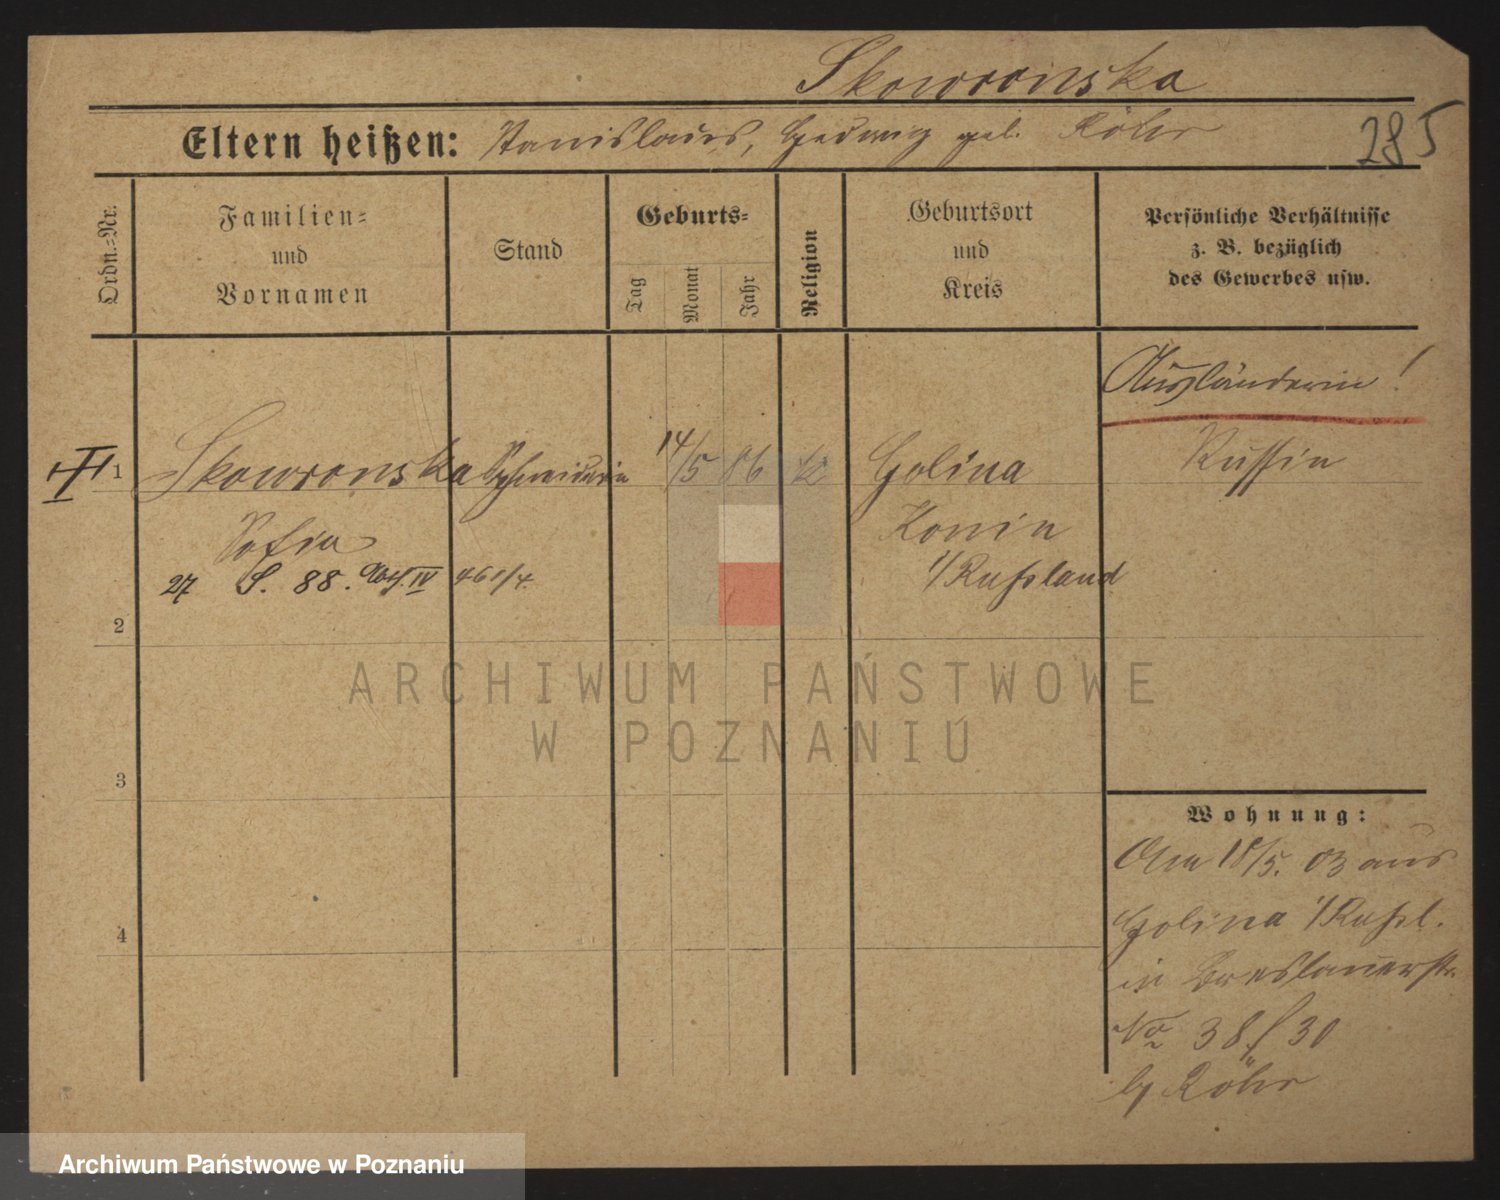 Skowronska
Eltern heißen: Stanislaus, Hedwig geb. Röhr
285
Ordn.-Nr.
Familien-
und
Vornamen
Stand
Geburts-
Tag
Monat
Jahr
Religion
Geburtsort
und
Kreis
Persönliche Verhältnisse
z. B. bezüglich
des Gewerbes usw.
Ausländerin!
1 Skowronska Schneiderin 14/5 86 k Golina Russin
Sofia Konin
27 S. 88. IV 461/4. i/Russland
2
ARCHIWUM PAŃSTWOWE
W POZNANIU
3
4
Wohnung:
Am 18/5. 03 aus
Golina i/Russl.
in Breslauerstr.
No 38 / 30
b/ Röhr
Archiwum Państwowe w Poznaniu